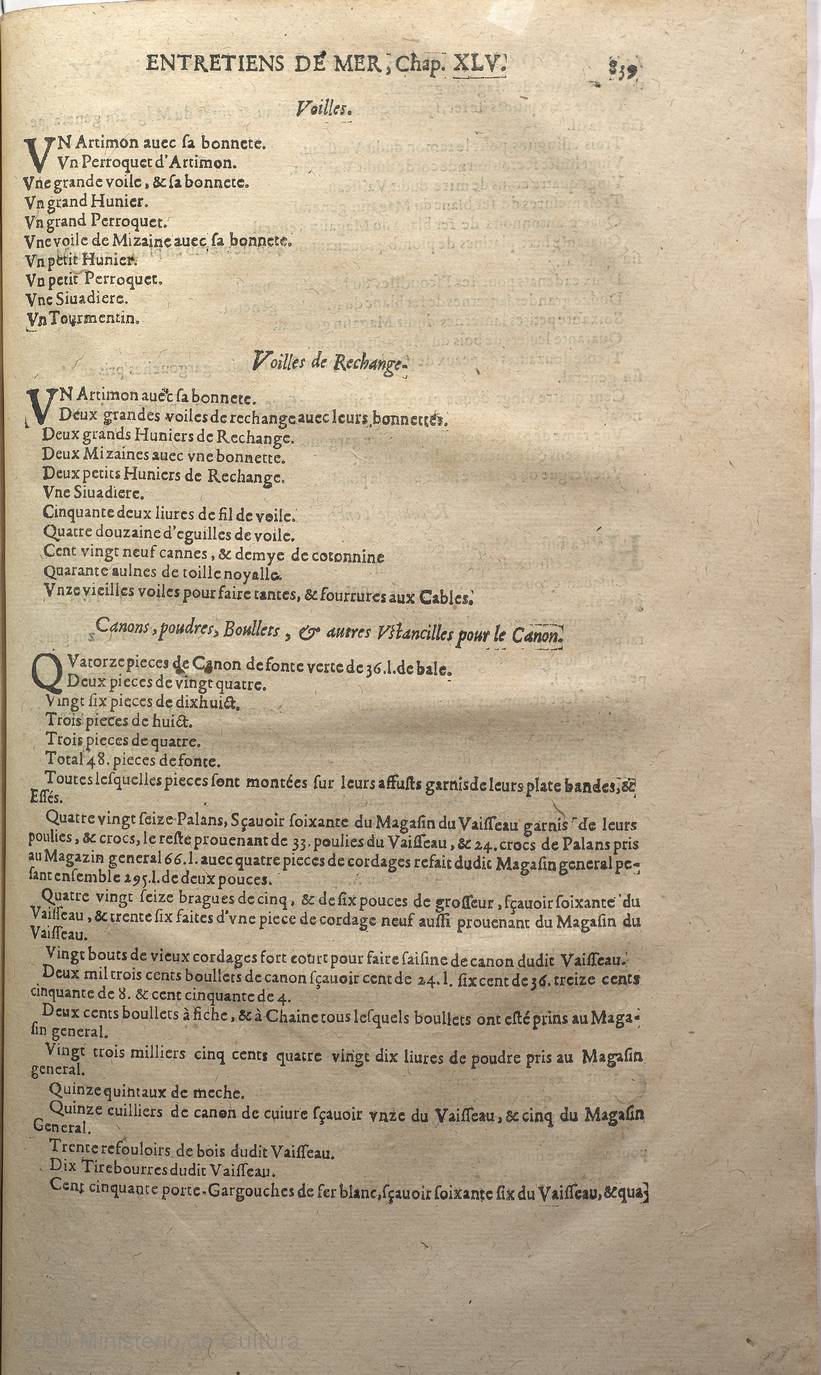 ENTRETIENS DE MER, Chap. XLV. 839
Voilles.
VN Artimon auec ſa bonnete.
Vn Perroquet d'Artimon.
Vne grande voile, & ſa bonnete.
Vn grand Hunier.
Vn grand Perroquet.
Vne voile de Mizaine auec ſa bonnete.
Vn petit Hunier.
Vn petit Perroquet.
Vne Siuadiere.
Vn Tourmentin.
Voilles de Rechange.
VN Artimon auec ſa bonnete.
Deux grandes voiles de rechange auec leurs bonnettes.
Deux grands Huniers de Rechange.
Deux Mizaines auec vne bonnette.
Deux petits Huniers de Rechange.
Vne Siuadiere.
Cinquante deux liures de fil de voile.
Quatre douzaine d'eguilles de voile.
Cent vingt neuf cannes, & demye de cotonnine
Quarante aulnes de toille noyalle.
Vnze vieilles voiles pour faire tantes, & fourrures aux Cables.
Canons, poudres, Boullets, & autres Vstancilles pour le Canon.
QVatorze pieces de Canon de fonte verte de 36. l. de bale.
Deux pieces de vingt quatre.
Vingt ſix pieces de dixhuict.
Trois pieces de huict.
Trois pieces de quatre.
Total 48. pieces de fonte.
Toutes leſquelles pieces ſont montées ſur leurs affuſts garnis de leurs plate bandes, &
Eſſés.
Quatre vingt ſeize Palans, Sçauoir ſoixante du Magaſin du Vaiſſeau garnis de leurs
poulies, & crocs, le reſte prouenant de 33. poulies du Vaiſſeau, & 24. crocs de Palans pris
au Magazin general 66. l. auec quatre pieces de cordages refait dudit Magaſin general pe-
ſant enſemble 295. l. de deux pouces.
Quatre vingt ſeize bragues de cinq, & de ſix pouces de groſſeur, ſçauoir ſoixante du
Vaiſſeau, & trente ſix faites d'vne piece de cordage neuf auſſi prouenant du Magaſin du
Vaiſſeau.
Vingt bouts de vieux cordages fort court pour faire ſaiſine de canon dudit Vaiſſeau.
Deux mil trois cents boullets de canon ſçauoir cent de 24. l. ſix cent de 36. treize cents
cinquante de 8. & cent cinquante de 4.
Deux cents boullets à fiche, & à Chaine tous leſquels boullets ont eſté prins au Maga-
ſin general.
Vingt trois milliers cinq cents quatre vingt dix liures de poudre pris au Magaſin
general.
Quinze quintaux de meche.
Quinze cuilliers de canon de cuiure ſçauoir vnze du Vaiſſeau, & cinq du Magaſin
General.
Trente refouloirs de bois dudit Vaiſſeau.
Dix Tirebourres dudit Vaiſſeau.
Cent cinquante porte-Gargouches de fer blanc, ſçauoir ſoixante ſix du Vaiſſeau, & qua-
2009 Ministerio de Cultura